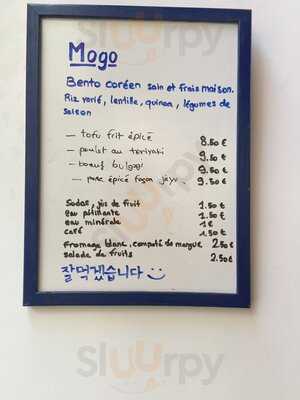 Mogo
Bento coréen sain et frais maison.
Riz varié, lentille, quinoa, légumes de
saison
- tofu frit épicé 8.50 €
- poulet au teriyaki 9.50 €
- boeuf bulgogi 9.50 €
- porc épicé façon jeyu. 9.50 €
Sodas, jus de fruit 1.50 €
eau pétillante 1.50 €
eau minérale 1 €
café 1.50 €
Fromage blanc, compote de mangue 2.50 €
salade de fruits 2.50 €
잘 먹겠습니다
sluurpy
sluurpy